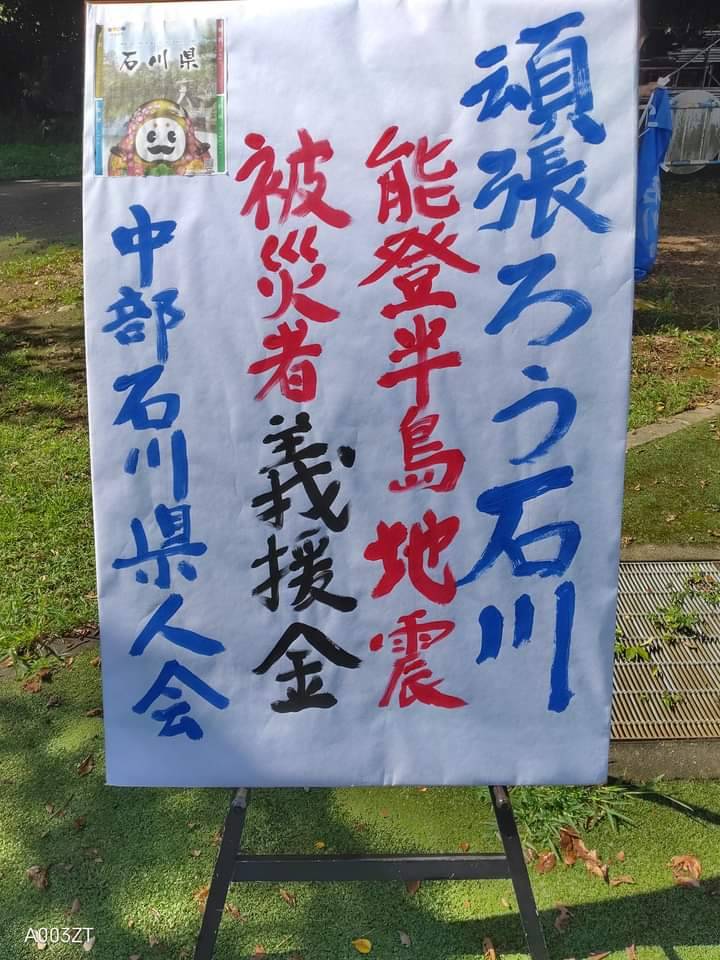 頑張ろう石川
能登半島地震
被災者義援金
石川県
中部石川県人会
A003ZT